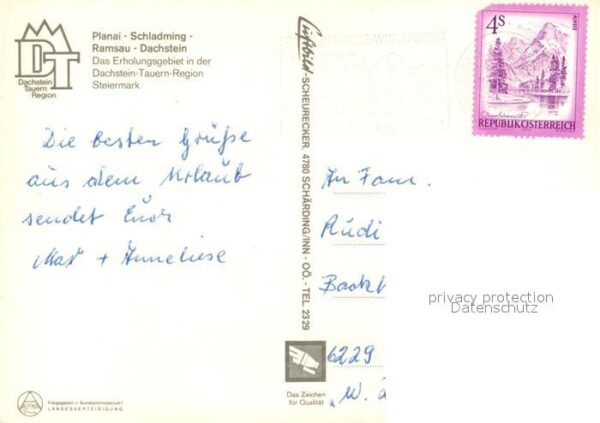 Planai - Schladming -
Ramsau - Dachstein
Das Erholungsgebiet in der
Dachstein-Tauern-Region
Steiermark
DT
Dachstein
Tauern
Region
Die besten Grüße
aus dem Urlaub
sendet Euch
Max + Anneliese
Luftbild-SCHEURECKER, 4780 SCHÄRDING/INN - OÖ. - TEL. 2329
4S
ALMSEE
REPUBLIK ÖSTERREICH
An Fam.
Rudi
privacy protection
Datenschutz
6229
W.
Das Zeichen
für Qualität
Freigegeben v. Bundesministerium f.
LANDESVERTEIDIGUNG